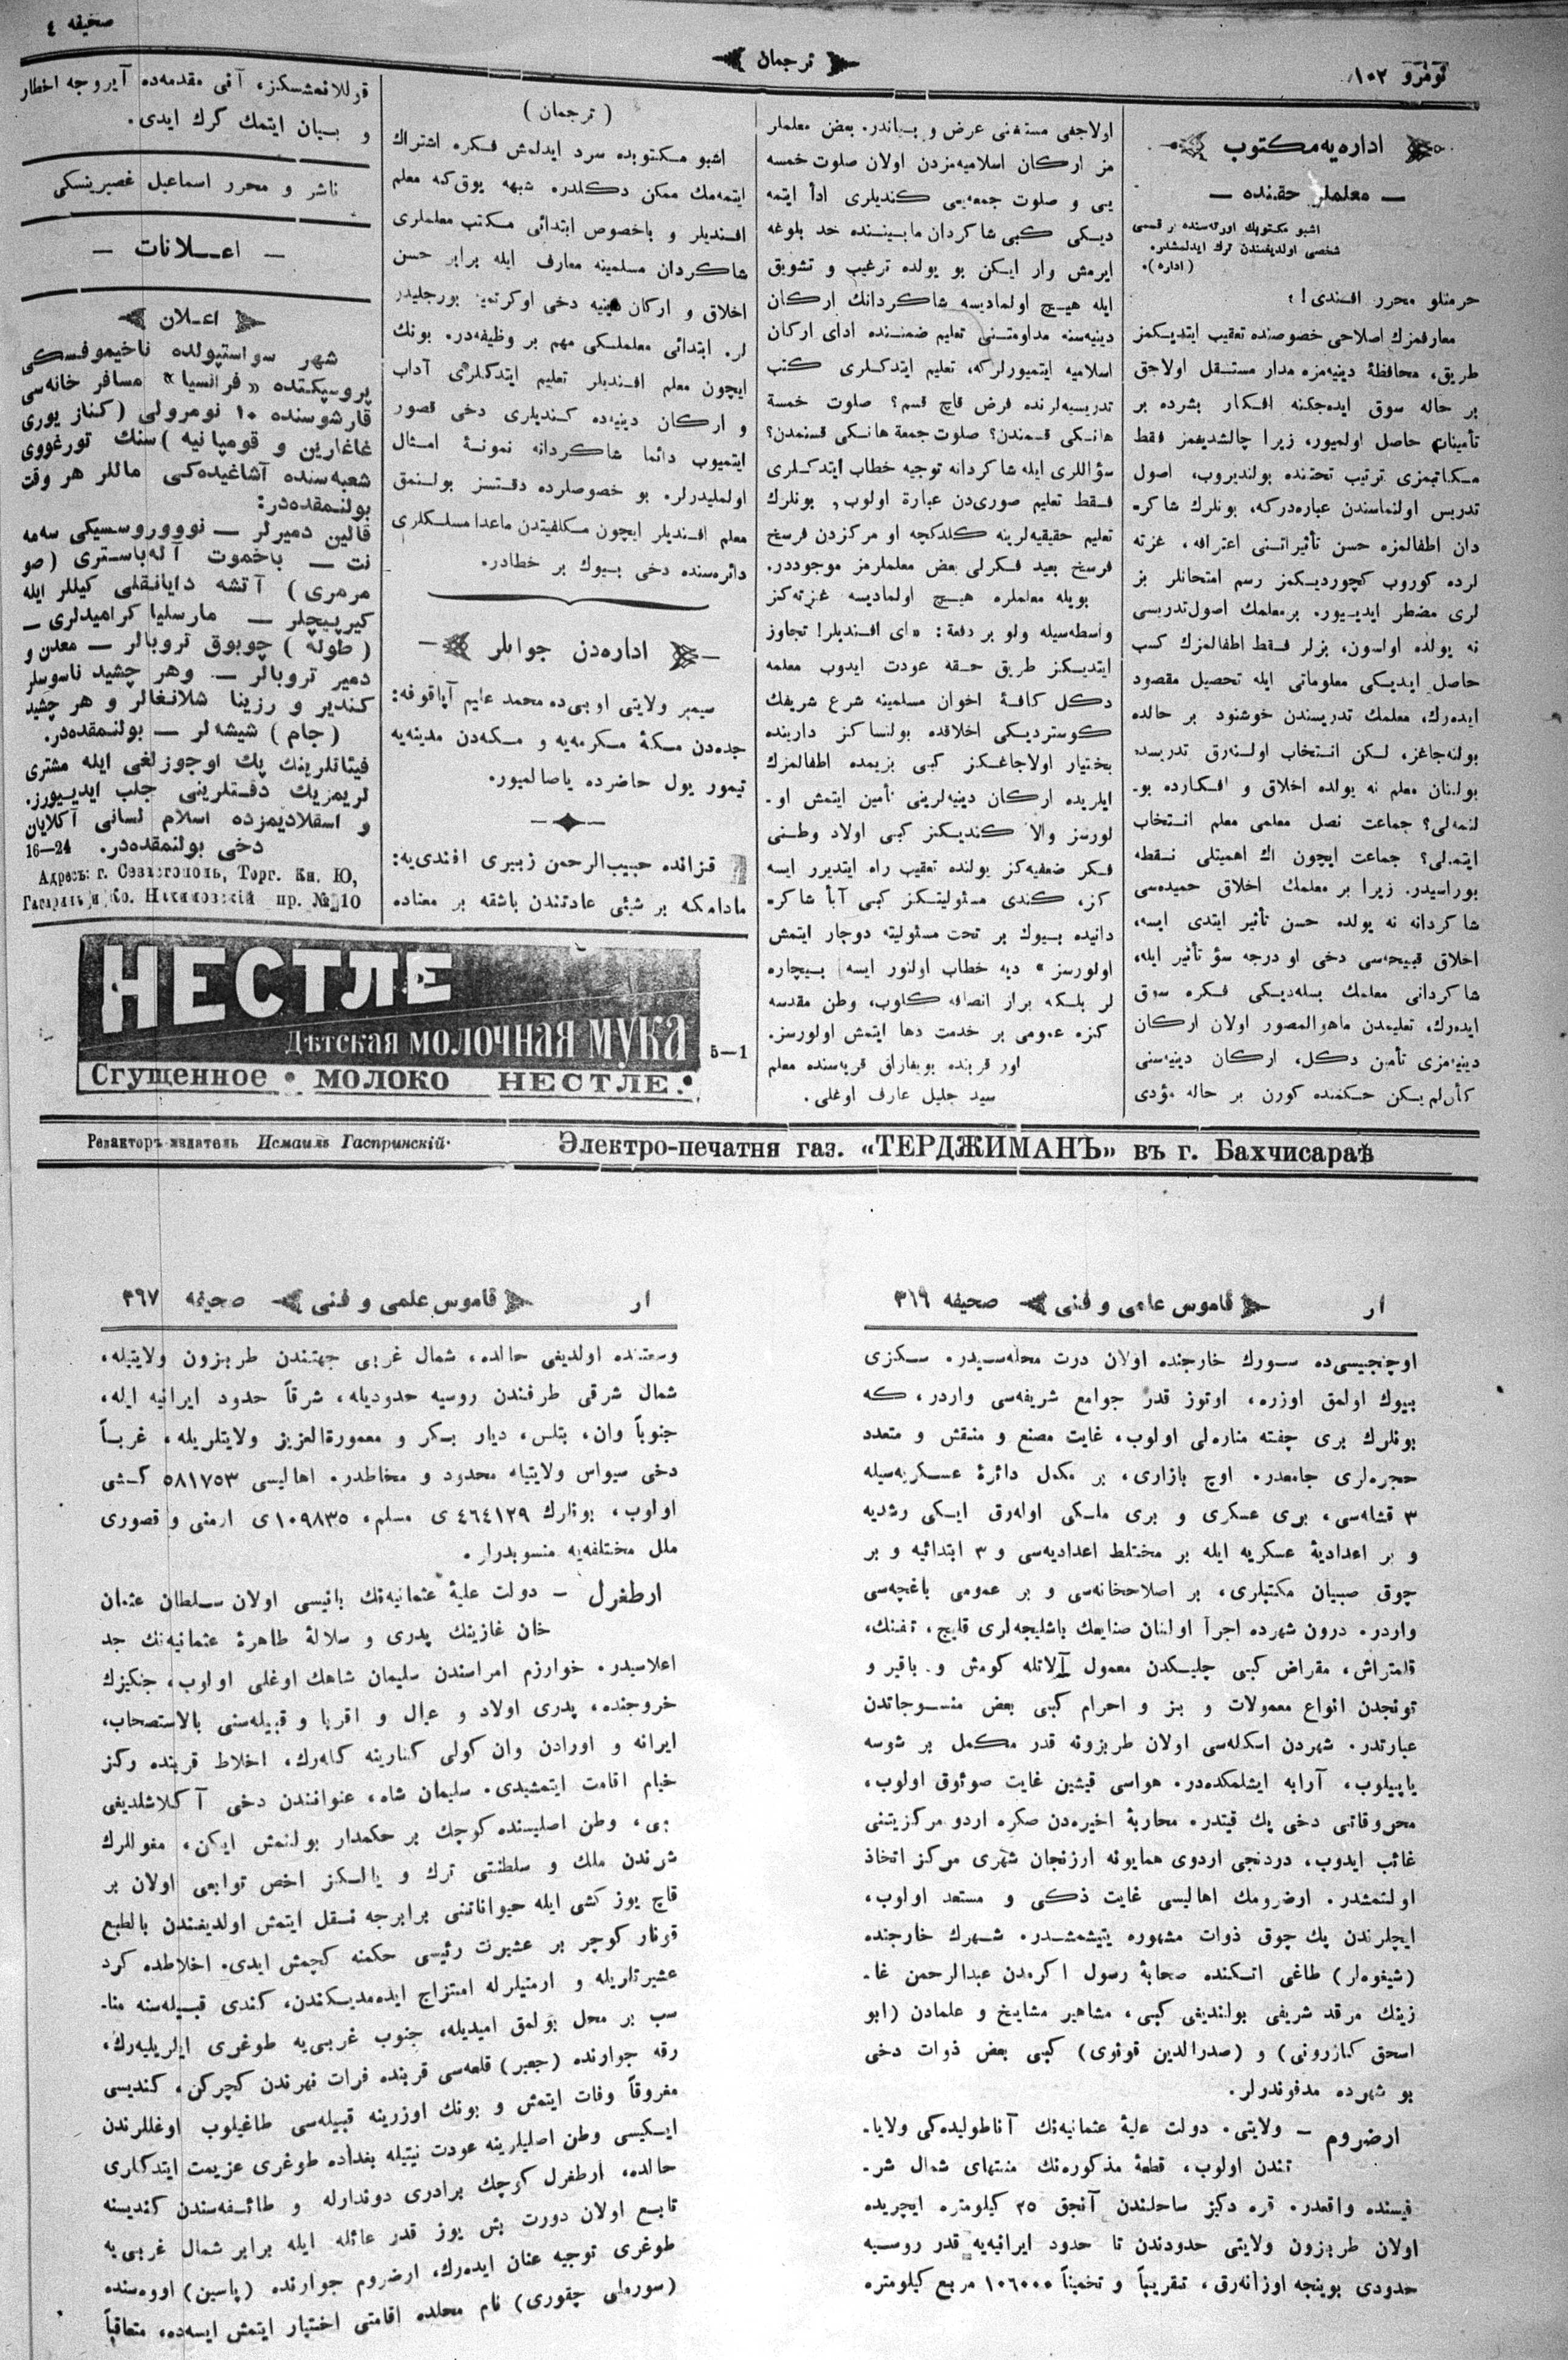 نومرو ١٠٢
ترجمان
صحيفه ٤
اداره‌يه مكتوب
— معلملر حقنده —
اشبو مكتوبك اورته‌سنده بر قسمى
شخصى اولديغندن ترك ايدلمشدر.
(اداره).
حرمتلو محرر افندى!
معارفمزك اصلاحى خصوصنده تعقيب ايتديكمز
طريق، محافظهٔ دينيه‌مزه مدار مستقل اولاجق
بر حاله سوق ايده‌جكنه افكار بشرده بر
تأمينات حاصل اولميور، زيرا چالشديغمز فقط
مكاتبمزى ترتيب تحتنده بولنديروب، اصول
تدريس اولنماسندن عباره‌دركه، بونلرك شاكر-
دان اطفالمزه حسن تأثيراتنى اعترافه، غزته
لرده كوروب كچورديكمز رسم امتحانلر بز
لرى مضطر ايدييور. بر معلمك اصول تدريسى
نه يولده اولسون، بزلر فقط اطفالمزك كسب
حاصل ايديكى معلوماتى ايله تحصيل مقصود
ايده‌رك، معلمك تدريسندن خوشنود بر حالده
بولنه‌جاغز، لكن انتخاب اولنه‌رق تدريسده
بولنان معلم نه يولده اخلاق و افكارده بو-
لنمه‌لى؟ جماعت نصل معلمى معلم انتخاب
ايتمه‌لى؟ جماعت ايچون اك اهميتلى نقطه
بوراسيدر. زيرا بر معلمك اخلاق حميده‌سى
شاكردانه نه يولده حسن تأثير ايتدى ايسه،
اخلاق قبيحه‌سى دخى او درجه سؤ تأثير ايله،
شاكردانى معلمك بسله‌ديكى فكره سوق
ايده‌رك، تعليمدن ماهو المصور اولان اركان
دينيه‌مزى تأمين دكل، اركان دينيه‌سنى
كأن لم يكن حكمنده كورن بر حاله مؤدى
اولاجغى مستغنى عرض و بياندر. بعض معلملر
مز اركان اسلاميه‌مزدن اولان صلوت خمسه
يى و صلوت جمعه‌يى كنديلرى ادأ ايتمه
ديكى كبى شاكردان مابيننده حد بلوغه
ايرمش وار ايكن بو يولده ترغيب و تشويق
ايله هيچ اولماديسه شاكردانك اركان
دينيه‌سنه مداومتنى تعليم ضمننده اداى اركان
اسلاميه ايتميورلركه، تعليم ايتدكلرى كتب
تدريسيه‌لرنده فرض قاچ قسم؟ صلوت خمسهٔ
هانكى قسمندن؟ صلوت جمعهٔ هانكى قسمندن؟
سؤاللرى ايله شاكردانه توجيه خطاب ايتدكلرى
فقط تعليم صورى‌دن عبارة اولوب, بونلرك
تعليم حقيقيه‌لرينه كلدكچه او مركزدن فرسخ
فرسخ بعيد فكرلى بعض معلملرمز موجوددر.
بويله معلملره هيچ اولماديسه غزته‌كز
واسطه‌سيله ولو بر دفعة: «اى افنديلر! تجاوز
ايتديكز طريق حقه عودت ايدوب معلمه
دكل كافهٔ اخوان مسلمينه شرع شريفك
كوستردیكى اخلاقده بولنساكز دارينده
بختيار اولاجاغكز كبى بزيمده اطفالمزك
ايلريده اركان دينيه‌لرينى تأمين ايتمش او-
لورسز والا كنديكز كبى اولاد وطنى
فكر ضعيفه‌كز يولنده تعقيب راه ايتديرر ايسه
كز، كندى مسئوليتكز كبى آبأ شاكر-
دانيده بيوك بر تحت مسئوليته دوچار ايتمش
اولورسز» ديه خطاب اولنور ايسه بيچاره
لر بلكه براز انصافه كلوب، وطن مقدسه
كزه عمومى بر خدمت دها ايتمش اولورسز.
اور قرينده بويفازلق قريه‌سنده معلم
سيد جليل عارف اوغلى.
(ترجمان)
اشبو مكتوبده سرد ايدلمش فكره اشتراك
ايتمه‌مك ممكن دكلدر. شبهه يوق كه معلم
افنديلر و باخصوص ابتدائى مكتب معلملرى
شاكردان مسلمينه معارف ايله برابر حسن
اخلاق و اركان دينيه دخى اوكرتميه بورجليدر
لر. ابتدائى معلملكى مهم بر وظيفه‌در. بونك
ايچون معلم افنديلر تعليم ايتدكلرى آداب
و اركان دينيه‌ده كنديلرى دخى قصور
ايتميوب دائما شاكردانه نمونهٔ امثال
اولمليدرلر. بو خصوصلرده دقتسز بولنمق
معلم افنديلر ايچون مكلفيتدن ماعدا مسلكلرى
دائره‌سنده دخى بيوك بر خطادر.
اداره‌دن جوابلر
سيمبر ولايتى اوبى‌ده محمد عليم آپاقوفه:
جده‌دن مكهٔ مكرمه‌يه و مكه‌دن مدينه‌يه
تيمور يول حاضرده ياصالميور.
قزانده حبيب الرحمن زبيرى افندى‌يه:
مادامكه بر شيئى عادتندن باشقه بر معناده
قوللانمشسكز، آنى مقدمه‌ده آيروجه اخطار
و بيان ايتمك كرك ايدى.
ناشر و محرر اسماعيل غصپرينسكى
— اعلانات —
اعلان
شهر سواستپولده ناخيموفسكى
پروسپكتده «فرانسيا» مسافر خانه‌سى
قارشوسنده ١٠ نومرولى (كناز يورى
غاغارين و قومپانيه) سنك تورغووى
شعبه‌سنده آشاغيده‌كى ماللر هر وقت
بولنمقده‌در:
قالين دميرلر — نووروسسيكى سه‌مه
نت — باخموت آله‌باسترى (صو
مرمرى) آتشه دايانقلى كيللر ايله
كيرپيچلر — مارسليا كراميدلرى —
(طوله) چوبوق تروبالر — معدن و
دمير تروبالر — وهر چشيد ناسوسلر
كندير و رزينا شلانغالر و هر چشيد
(جام) شيشه‌لر — بولنمقده‌در.
فيئاتلرينك پك اوجوزلغى ايله مشترى
لريمزيك دقتلرينى جلب ايدييورز.
و اسقلاديمزده اسلام لسانى آكلايان
دخى بولنمقده‌در. 16—24
Адресъ: г. Севастополь, Торг. Кн. Ю,
Гагаринъ и Ко. Нахимовскій пр. № 10
НЕСТЛЕ
Дѣтская МОЛОЧНАЯ МУКА
Сгущенное • МОЛОКО НЕСТЛЕ.
5—1
Редакторъ-издатель Исмаилъ Гаспринскій.
Электро-печатня газ. «ТЕРДЖИМАНЪ» въ г. Бахчисараѣ
ار قاموس علمى و فنى صحيفه ٣١٩
اوچنجيسى‌ده سورك خارجنده اولان درت محله‌سيدر. سكزى
بيوك اولمق اوزره، اوتوز قدر جوامع شريفه‌سى واردر، كه
بونلرك برى چفته مناره‌لى اولوب، غايت مصنع و منقش و متعدد
حجره‌لرى جامعدر. اوچ بازارى، بر مكمل دائرهٔ عسكريه‌سيله
٣ قشله‌سى، برى عسكرى و برى ملكى اوله‌رق ايكى رشديه
و بر اعداديهٔ عسكريه ايله بر مختلط اعداديه‌سى و ٣ ابتدائيه و بر
چوق صبيان مكتبلرى، بر اصلاحخانه‌سى و بر عمومى باغچه‌سى
واردر. درون شهرده اجرأ اولنان صنايعك باشليجه‌لرى قليج، تفنك،
قلمتراش، مقراض كبى چليكدن معمول آلاتله كومش و باقير و
تونجدن انواع معمولات و بز و احرام كبى بعض منسوجاتدن
عبارتدر. شهردن اسكله‌سى اولان طربزونه قدر مكمل بر شوسه
ياپيلوب، آرابه ايشلمكده‌در. هواسى قيشين غايت صوئوق اولوب،
محروقاتى دخى پك قيتدر. محاربهٔ اخيره‌دن صكره اردو مركزيتنى
غائب ايدوب، دردنجى اردوى همايونه ارزنجان شهرى مركز اتخاذ
اولنمشدر. اوضرومك اهاليسى غايت ذكى و مستعد اولوب،
ايچلرندن پك چوق ذوات مشهوره يتيشمشدر. شهرك خارجنده
(شيغوه‌لر) طاغى اتكنده صحابهٔ رسول اكرمدن عبدالرحمن غا-
زينك مرقد شريفى بولنديغى كبى، مشاهير مشايخ و علمادن (ابو
اسحق كازرونى) و (صدرالدين قونوى) كبى بعض ذوات دخى
بو شهرده مدفوندرلر.
ارضروم — ولايتى. دولت عليهٔ عثمانيه‌نك آناطوليده‌كى ولايا-
تندن اولوب، قطعهٔ مذكوره‌نك منتهاى شمال شر-
قيسنده واقعدر. قره دكيز ساحلندن آنجق ٢٥ كيلومتره ايچريده
اولان طربزون ولايتى حدودندن تا حدود ايرانيه‌يه قدر روسيه
حدودى بوينجه اوزانه‌رق، تقريباً و تخميناً ١٠٦٠٠٠ مربع كيلومتره
ار قاموس علمى و فنى صحيفه ٣٩٧
وسعتنده اولديغى حالده، شمال غربى جهتندن طربزون ولايتيله،
شمال شرقى طرفندن روسيه حدوديله، شرقاً حدود ايرانيه ايله،
جنوباً وان، بتلس، ديار بكر و معمورة العزيز ولايتلريله، غرباً
دخى سيواس ولايتيله محدود و محاطدر. اهاليسى ٥٨١٧٥٣ كشى
اولوب، بونلرك ٤٦٤١٢٩ى مسلم، ١٠٩٨٣٥ى ارمنى و قصورى
ملل مختلفه‌يه منسوبدرلر.
ارطغرل — دولت عليهٔ عثمانيه‌نك بانيسى اولان سلطان عثمان
خان غازينك پدرى و سلالهٔ طاهرهٔ عثمانيه‌نك جد
اعلاسيدر. خوارزم امراسندن سليمان شاهك اوغلى اولوب، جنكيزك
خروجنده، پدرى اولاد و عيال و اقربا و قبيله‌سنى بالاستصحاب،
ايرانه و اورادن وان كولى كنارينه كله‌رك، اخلاط قربنده ركز
خيام اقامت ايتمشيدى. سليمان شاه، عنوانندن دخى آكلاشلديغى
بى، وطن اصليسنده كوچك بر حكمدار بولنمش ايكن، مغوللرك
شرندن ملك و سلطنتى ترك و يالكز اخص توابعى اولان بر
قاچ يوز كشى ايله حيواناتنى برابرجه نقل ايتمش اولديغندن بالطبع
قونار كوچر بر عشيرت رئيسى حكمنه كچمش ايدى. اخلاطده كرد
عشيرتلريله و ارمنيلرله امتزاج ايده‌مديكندن، كندى قبيله‌سنه منا-
سب بر محل بولمق اميديله، جنوب غربى‌يه طوغرى ايلريليه‌رك،
رقه جوارنده (جعبر) قلعه‌سى قربنده فرات نهرندن كچركن، كنديسى
مغروقاً وفات ايتمش و بونك اوزرينه قبيله‌سى طاغيلوب اوغللرندن
ايكيسى وطن اصليلرينه عودت نيتيله بغداده طوغرى عزيمت ايتدكلرى
حالده، ارطغرل كوچك برادرى دوندارله و طائفه‌سندن كنديسنه
تابع اولان دورت بش يوز قدر عائله ايله برابر شمال غربى‌يه
طوغرى توجيه عنان ايده‌رك، ارضروم جوارنده (پاسين) اووه‌سنده
(سورملى چقورى) نام محلده اقامتى اختيار ايتمش ايسه‌ده، متعاقباً